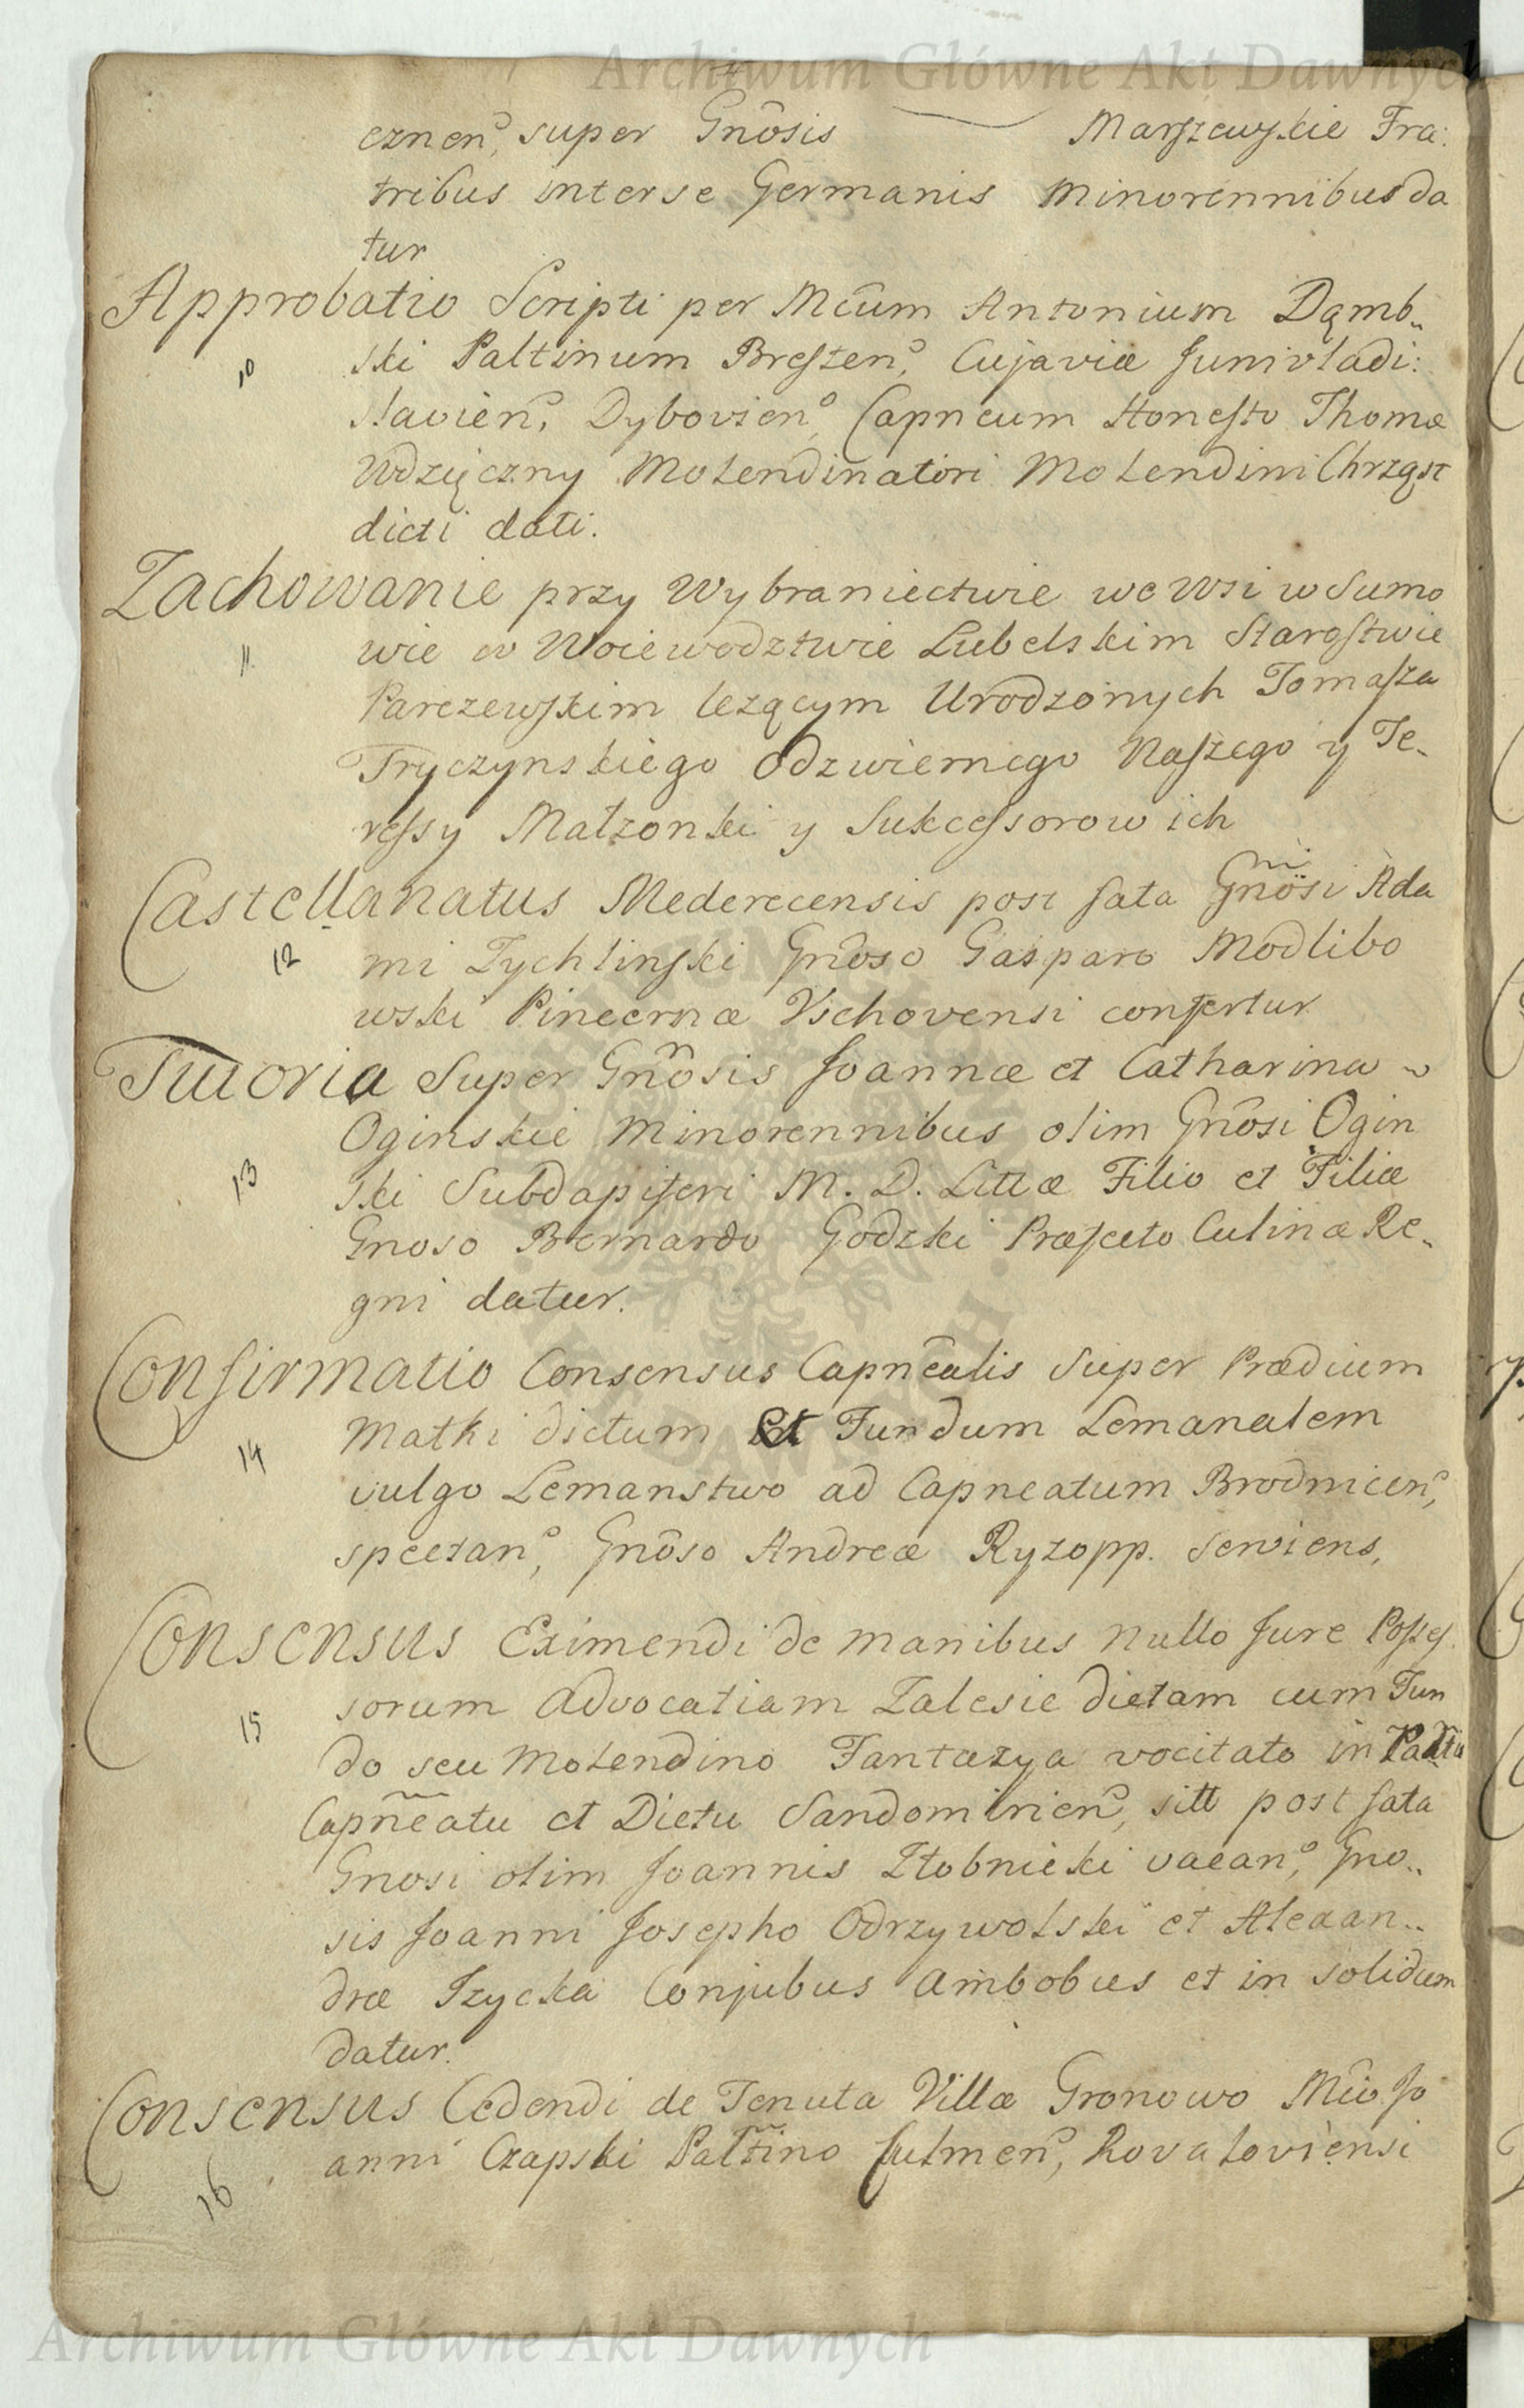 Archiwum Główne Akt Dawnych
cznen, super Gnosis Marszewskie Fra:
tribus inter se Germanis Minorennibus da
tur
Approbatio Scripti per Mcum Antonium Dąmb
ski Paltinum Bresten, Cujaviæ Junivladi:
slavien, Dybovien, Capneum Honesto Thomæ
Wdzięczny Molendinatori Molendini Chrząst
dicti dati.
10
Zachowanie przy Wybraniectwie we Wsi w Sumo
wie w Woiewodztwie Lubelskim Starostwie
11.
Parczewskim lezącym Urodzonych Tomasza
Tryczynskiego Odzwiernego Naszego y Te
ressy Małzonki y Sukcessorow ich
Castellanatus Mederecensis post fata Gnosi Ada
12
mi Zychlinski Gnoso Gasparo Modlibo
wski Pincernæ Vschovensi confertur
Tutoria Super Gnosis Joannæ et Catharina
Oginskie Minorennibus olim Gnosi Ogin
13
ski Subdapiferi M. D. Littæ Filio et Filiæ
Gnoso Bernardo Godzki Præfecto Culinæ Re
gni datur.
Confirmatio Consensus Capnealis Super Prædium
Matki dictum et Fundum Lemanalem
14
vulgo Lemanstwo ad Capneatum Brodnicen,
spectan, Gnoso Andreæ Ryzopp. serviens,
Consensus Eximendi de manibus nullo Jure Posses
sorum Advocatiam Zalesie dictam cum Fun
15
do seu Molendino Fantazya vocitato in Paltu
Capneatu et Dictu Sandomirien, sitt post fata
Gnosi olim Joannis Złobnicki vacan, Gno
sis Joanni Josepho Odrzywolski et Alexan
dræ Izycka Conjubus ambobus et in solidum
datur.
Consensus Cedendi de Tenuta Villæ Gronowo Mco Jo
anni Czapski Paltino Culmen, Kovaloviensi
16
Archiwum Główne Akt Dawnych